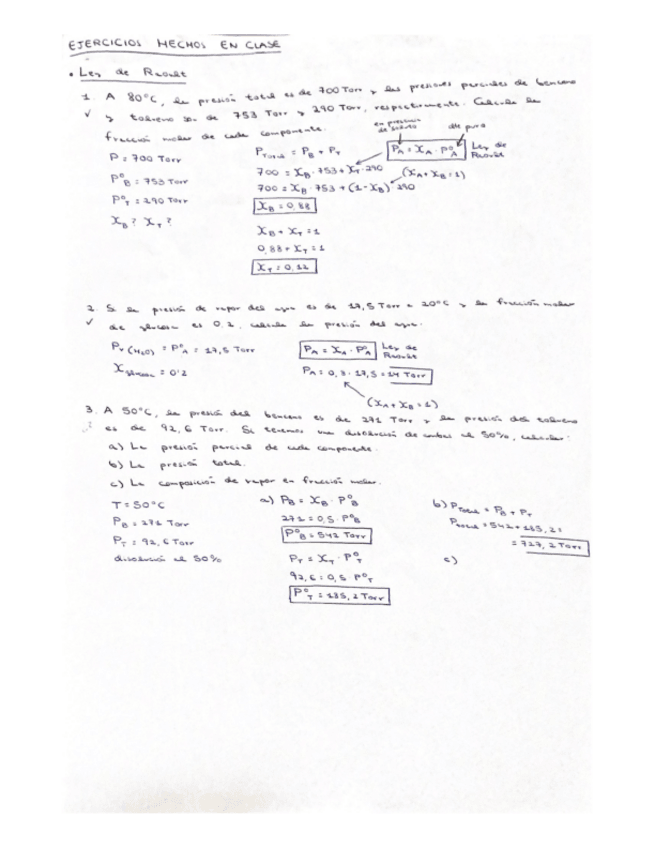 EJERCICIOS HECHOS EN CLASE
• Ley de Raoult
1. A 80ºC, la presión total es de 700 Torr y las presiones parciales de benceno
y tolueno son de 753 Torr y 290 Torr, respectivamente. Calcula la
fracción molar de cada componente.
P = 700 Torr
PºB = 753 Torr
PºT = 290 Torr
XB? XT?
PTOTAL = PB + PT
700 = XB · 753 + XT · 290
700 = XB · 753 + (1 - XB) · 290
XB = 0,88
XB + XT = 1
0,88 + XT = 1
XT = 0,12
en presencia de soluto
dte puro
PA = XA · PºA
Ley de Raoult
(XA + XB = 1)
2. Si la presión de vapor del agua es de 17,5 Torr a 20ºC y la fracción molar
de glucosa es 0.2, calcula la presión del agua.
Pv (H2O) = PºA = 17,5 Torr
X = 0'2
PA = XA · PºA
Ley de Raoult
PA = 0,8 · 17,5 = 14 Torr
(XA + XB = 1)
3. A 50ºC, la presión del benceno es de 271 Torr y la presión del tolueno
es de 92,6 Torr. Si tenemos una disolución de ambas al 50%, calcular:
a) La presión parcial de cada componente.
b) La presión total.
c) La composición de vapor en fracción molar.
T = 50ºC
PB = 271 Torr
PT = 92,6 Torr
disolución al 50%
a) PB = XB · PºB
271 = 0,5 · PºB
PºB = 542 Torr
PT = XT · PºT
92,6 = 0,5 PºT
PºT = 185,2 Torr
b) PTOTAL = PB + PT
PTOTAL = 542 + 185,2 =
= 727,2 Torr
c)